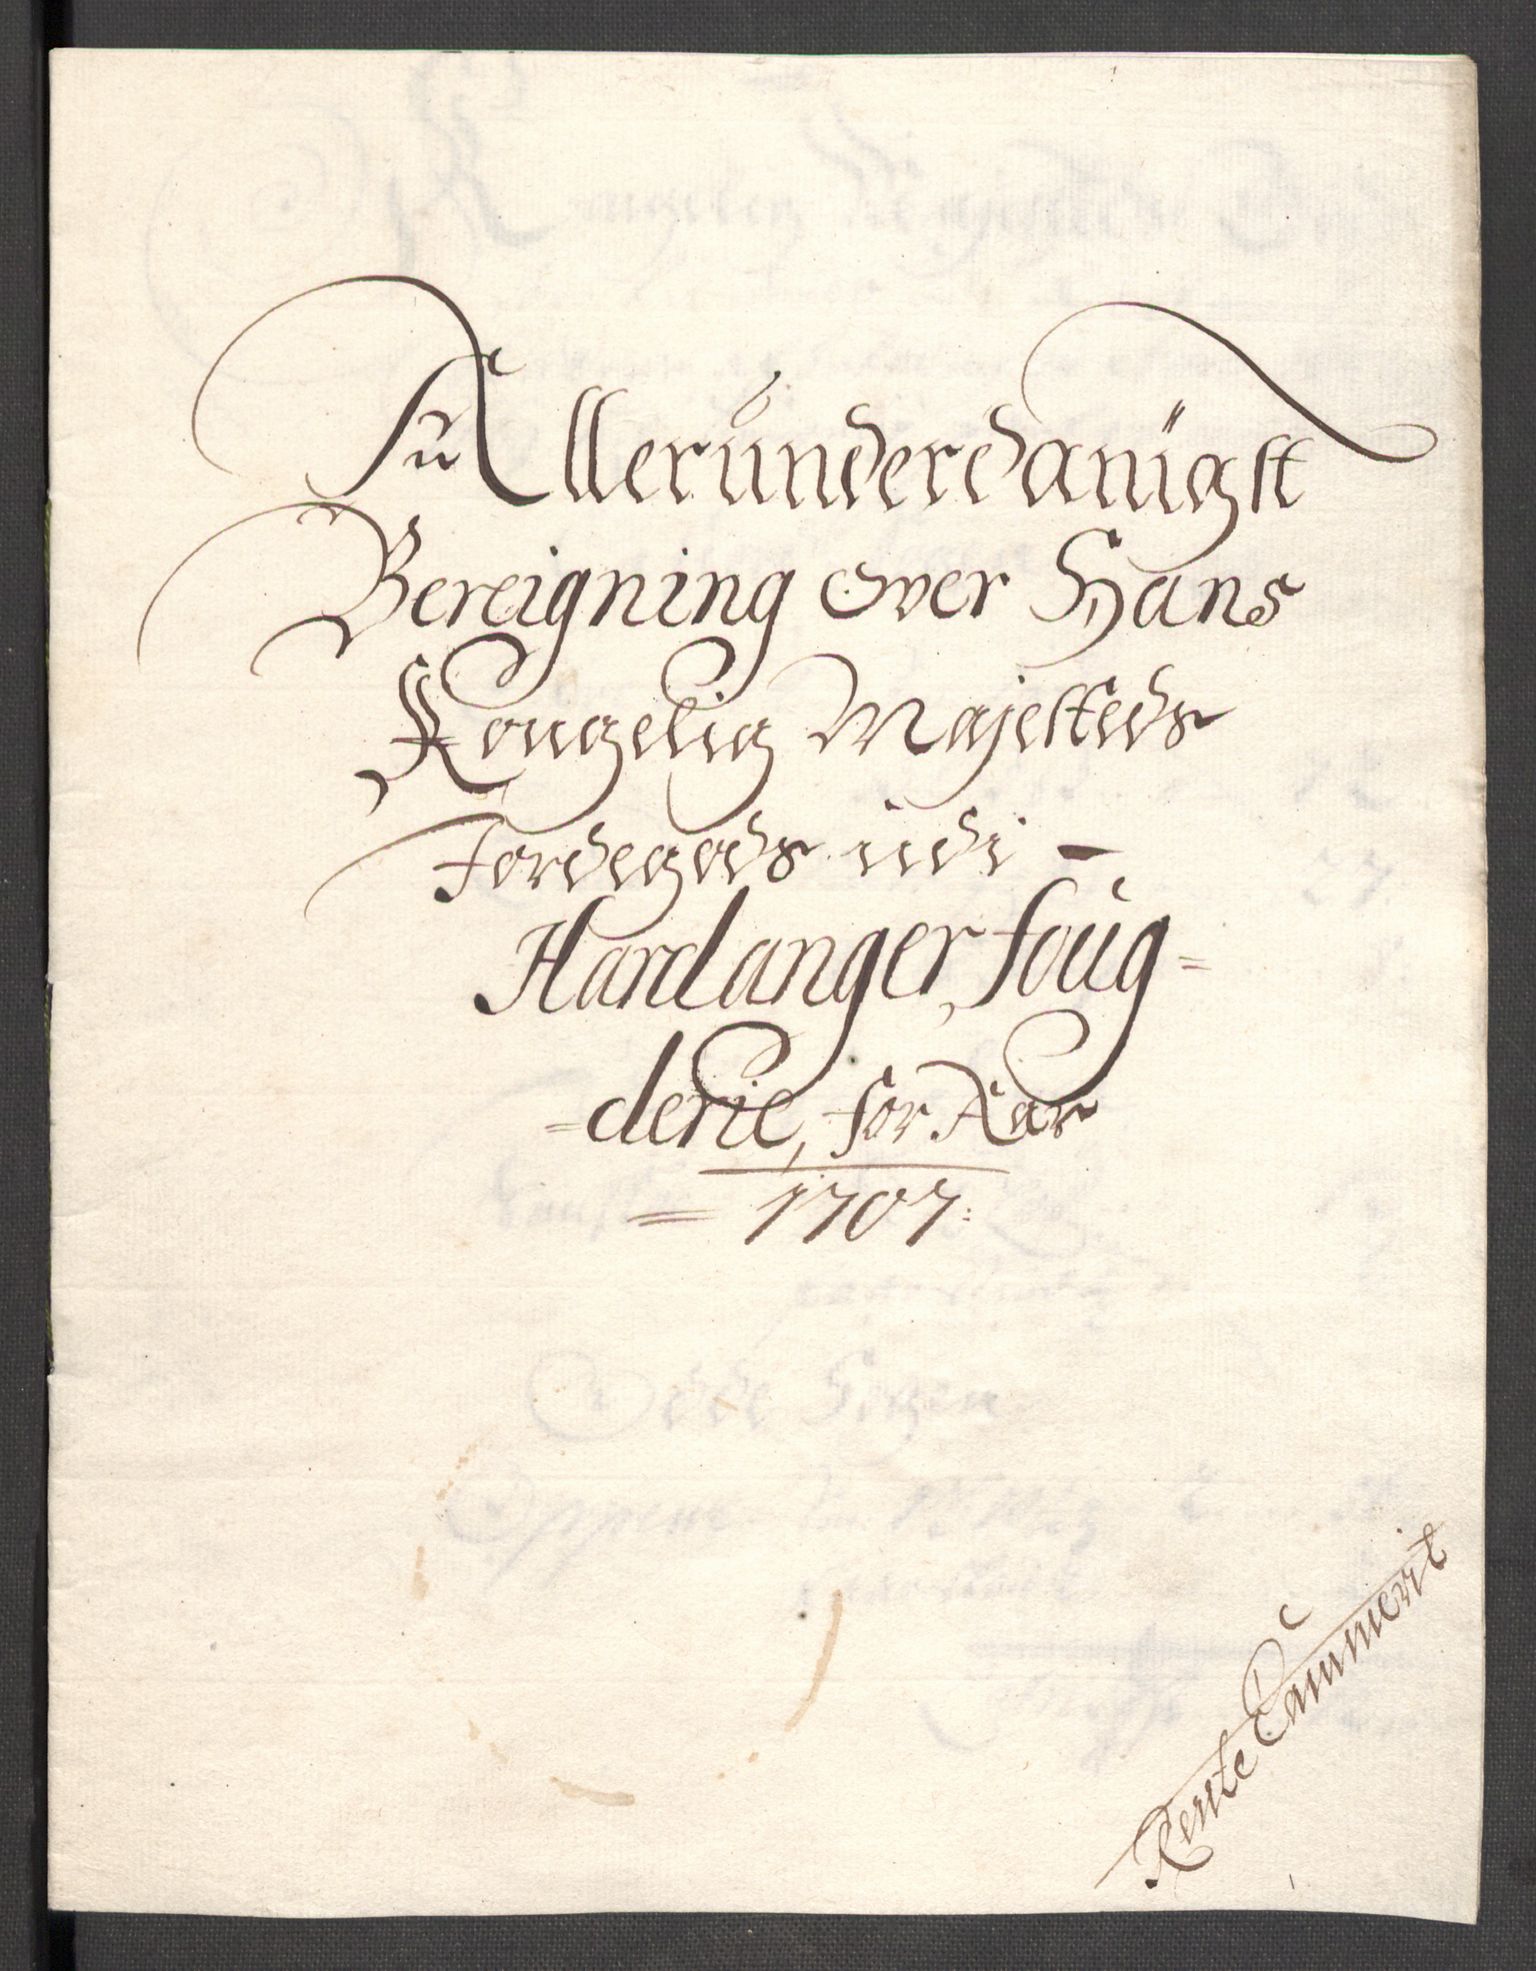 Allerunderdanigst
Bereigning over Hans
Kongelig Majesteds
Jordegods udi -
Hardanger, foug=
=derie, for Aar
= 1707:
Rente Cammerit